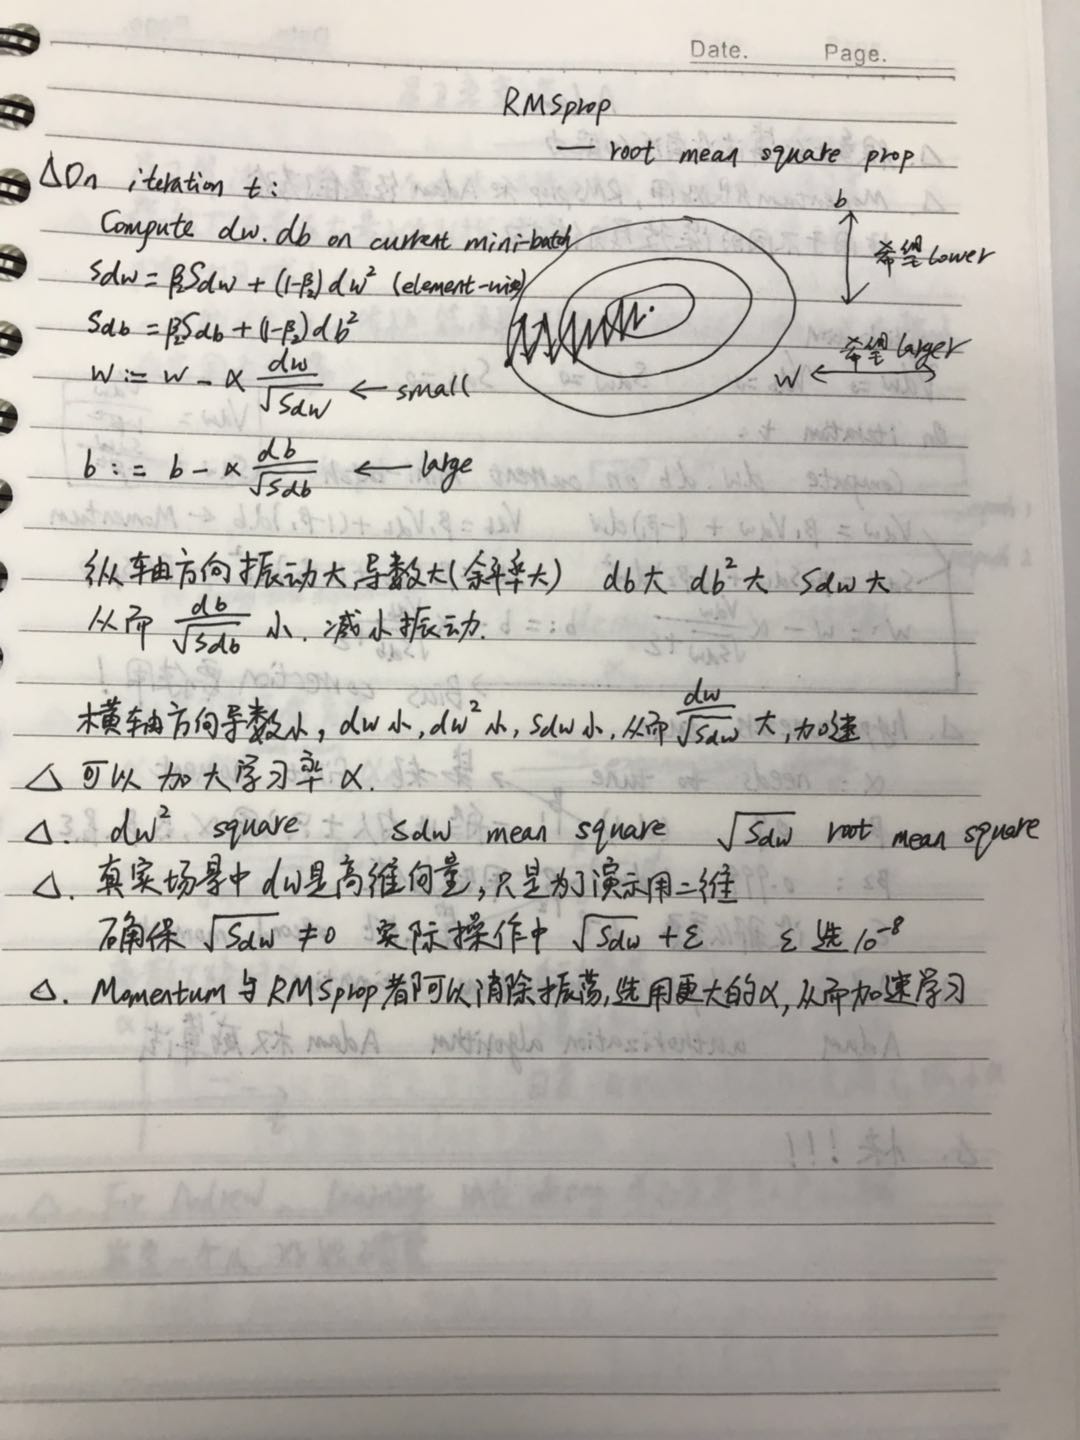 Date. Page.
RMSprop
— root mean square prop
△On iteration t:
Compute dw.db on current mini-batch
Sdw = β₂Sdw + (1-β₂)dw² (element-wise)
Sdb = β₂Sdb + (1-β₂)db²
w := w - α dw/√Sdw ← small
b := b - α db/√Sdb ← large
b
希望Lower
希望larger
W
纵轴方向振动大导数大(斜率大) db大 db²大 Sdw大
从而 db/√Sdb 小. 减小振动.
横轴方向导数小, dw小, dw²小, Sdw小, 从而 dw/√Sdw 大, 加速
△ 可以加大学习率α.
△. dw² square Sdw mean square √Sdw root mean square
△. 真实场景中dw是高维向量, 只是为了演示用二维
确保 √Sdw ≠0 实际操作中 √Sdw + ε ε选10⁻⁸
△. Momentum与RMSprop都可以消除振荡, 选用更大的α, 从而加速学习